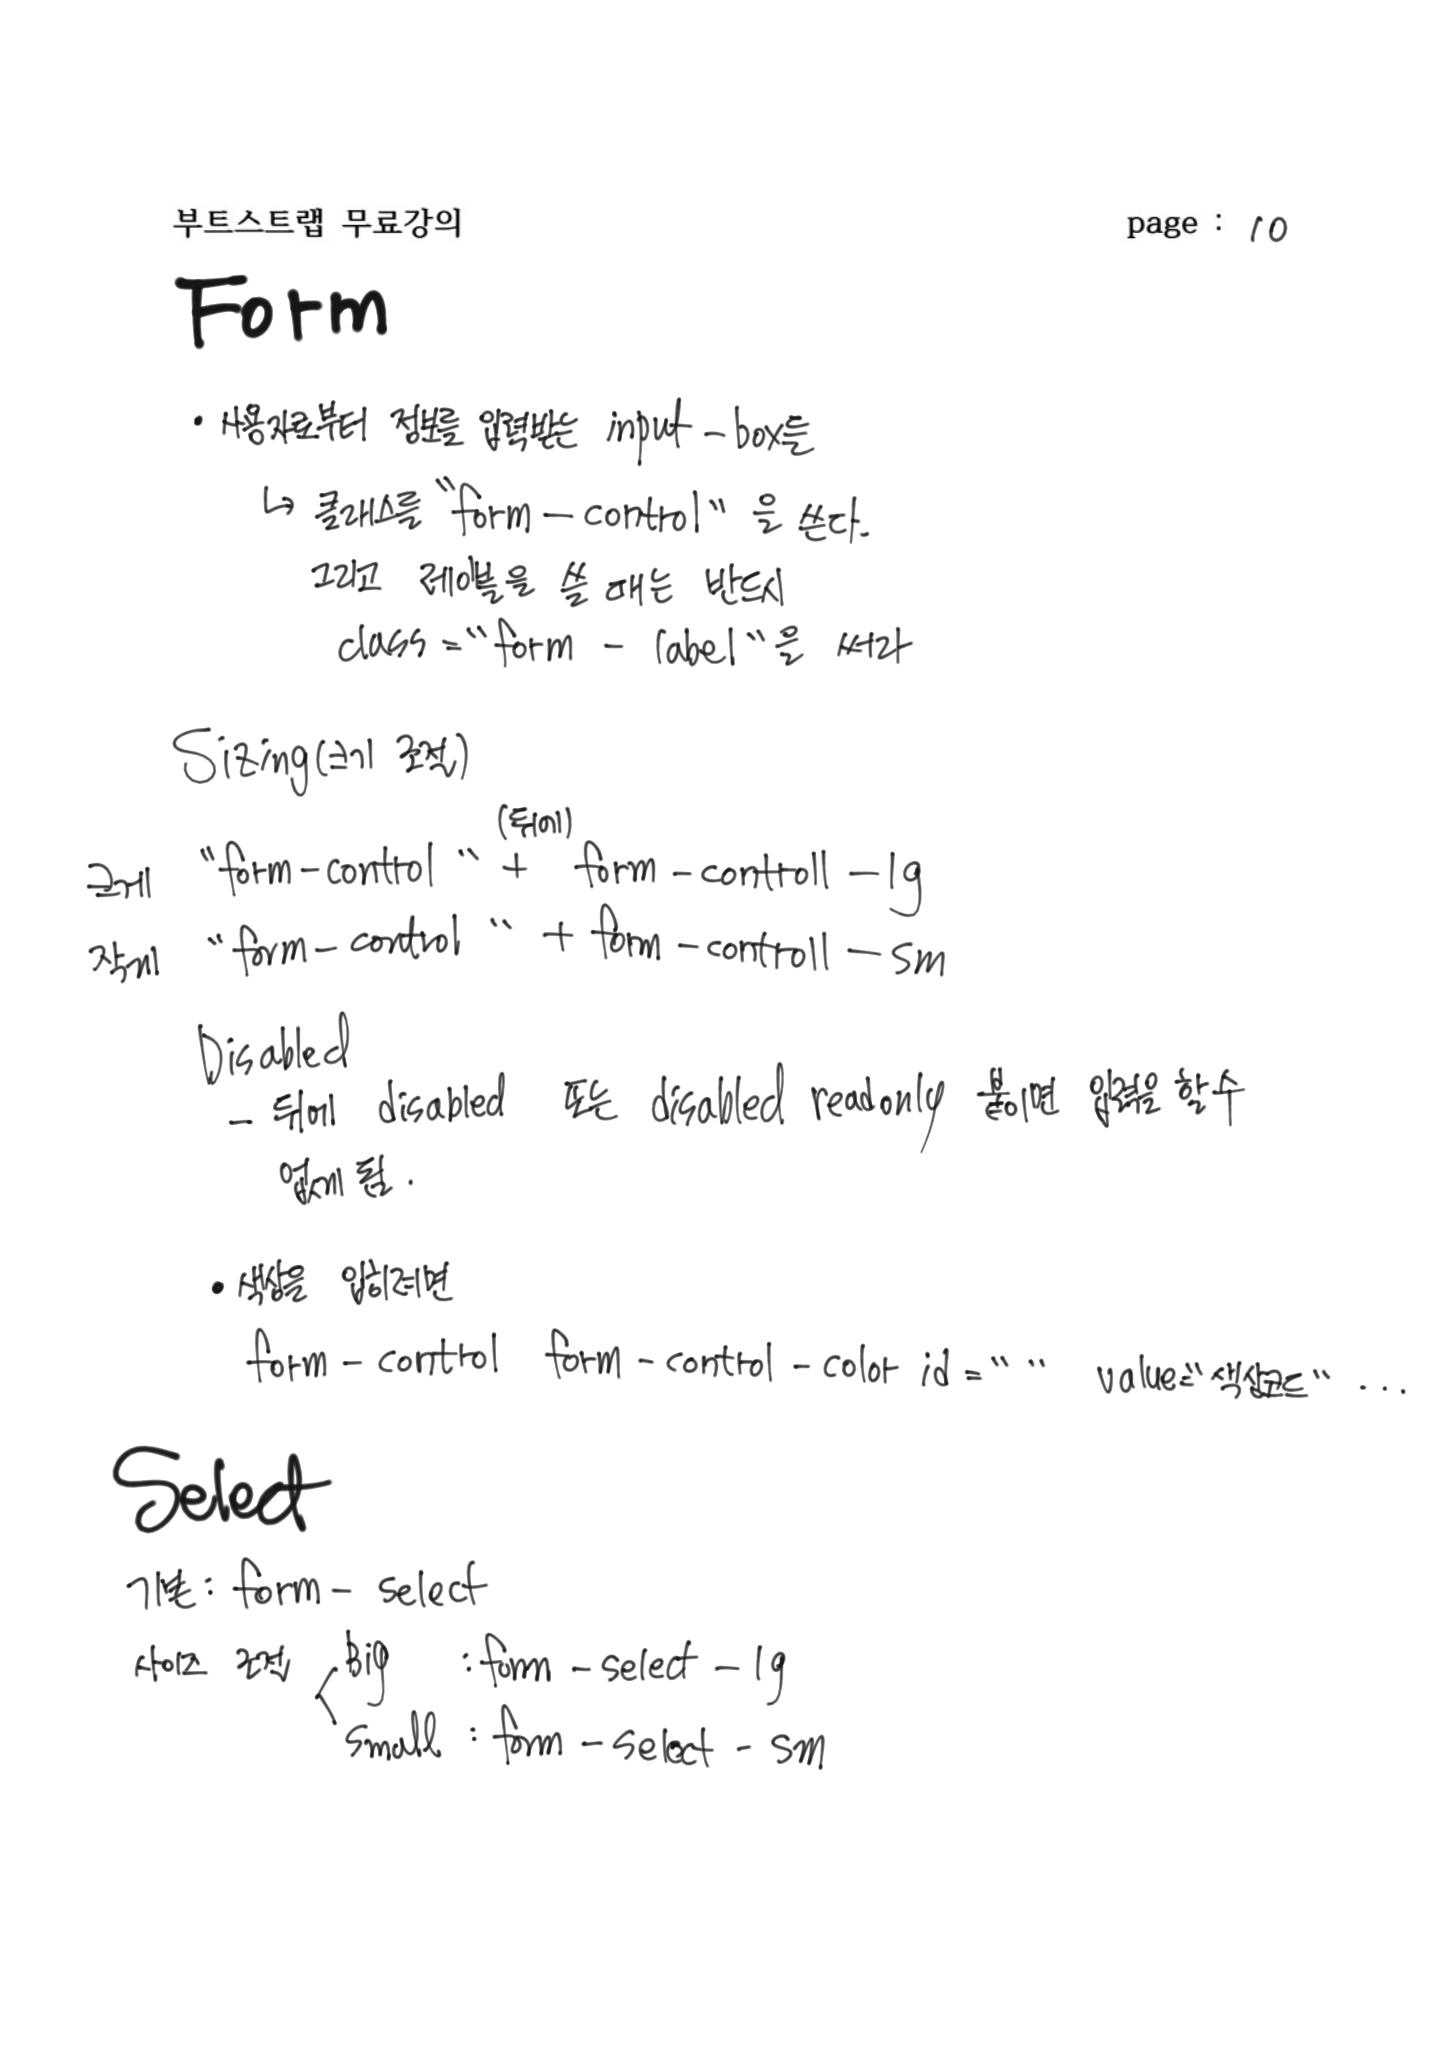 부트스트랩 무료강의 page : 10
Form
• 사용자로부터 정보를 입력받는 input-box들
↳ 클래스를 "form-control" 을 쓴다.
그리고 레이블을 쓸 때는 반드시
class="form - label"을 써라
Sizing(크기 조절)
(뒤에)
크게 "form-control" + form-controll-lg
작게 "form-control" + form-controll-sm
Disabled
- 뒤에 disabled 또는 disabled readonly 붙이면 입력을 할 수
없게 됨.
• 색상을 입히려면
form-control form-control-color id=" " value="색상코드" ...
Select
기본 : form-select
사이즈 조절 Big : form-select-lg
small : form-select-sm